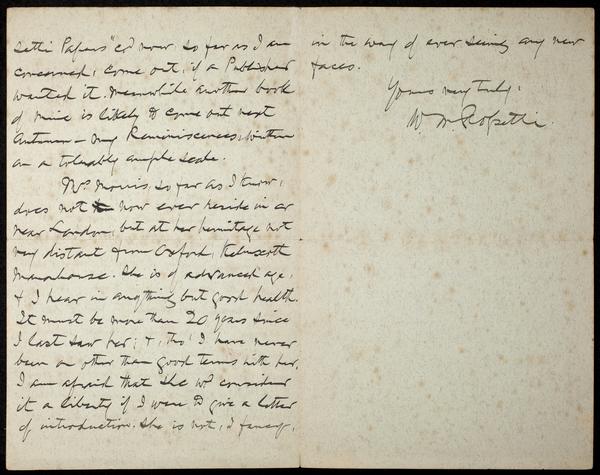 setti Papers" cd now so far as I am
concerned, come out, if a Publisher
wanted it. Meanwhile another book
of mine is likely to come out next
Autumn — my Reminiscences, written
on a tolerably ample scale.
Mrs. Morris, so far as I know,
does not now ever reside in or
near London, but at her hermitage not
very distant from Oxford, Kelmscott
Manorhouse. She is of advanced age,
& I hear in anything but good health.
It must be more than 20 years since
I last saw her; &, tho' I have never
been on other than good terms with her,
I am afraid that she wd consider
it a liberty if I were to give a letter
of introduction. She is not, I fancy,
in the way of ever seeing any new
faces.
Yours very truly,
W. M. Rossetti.